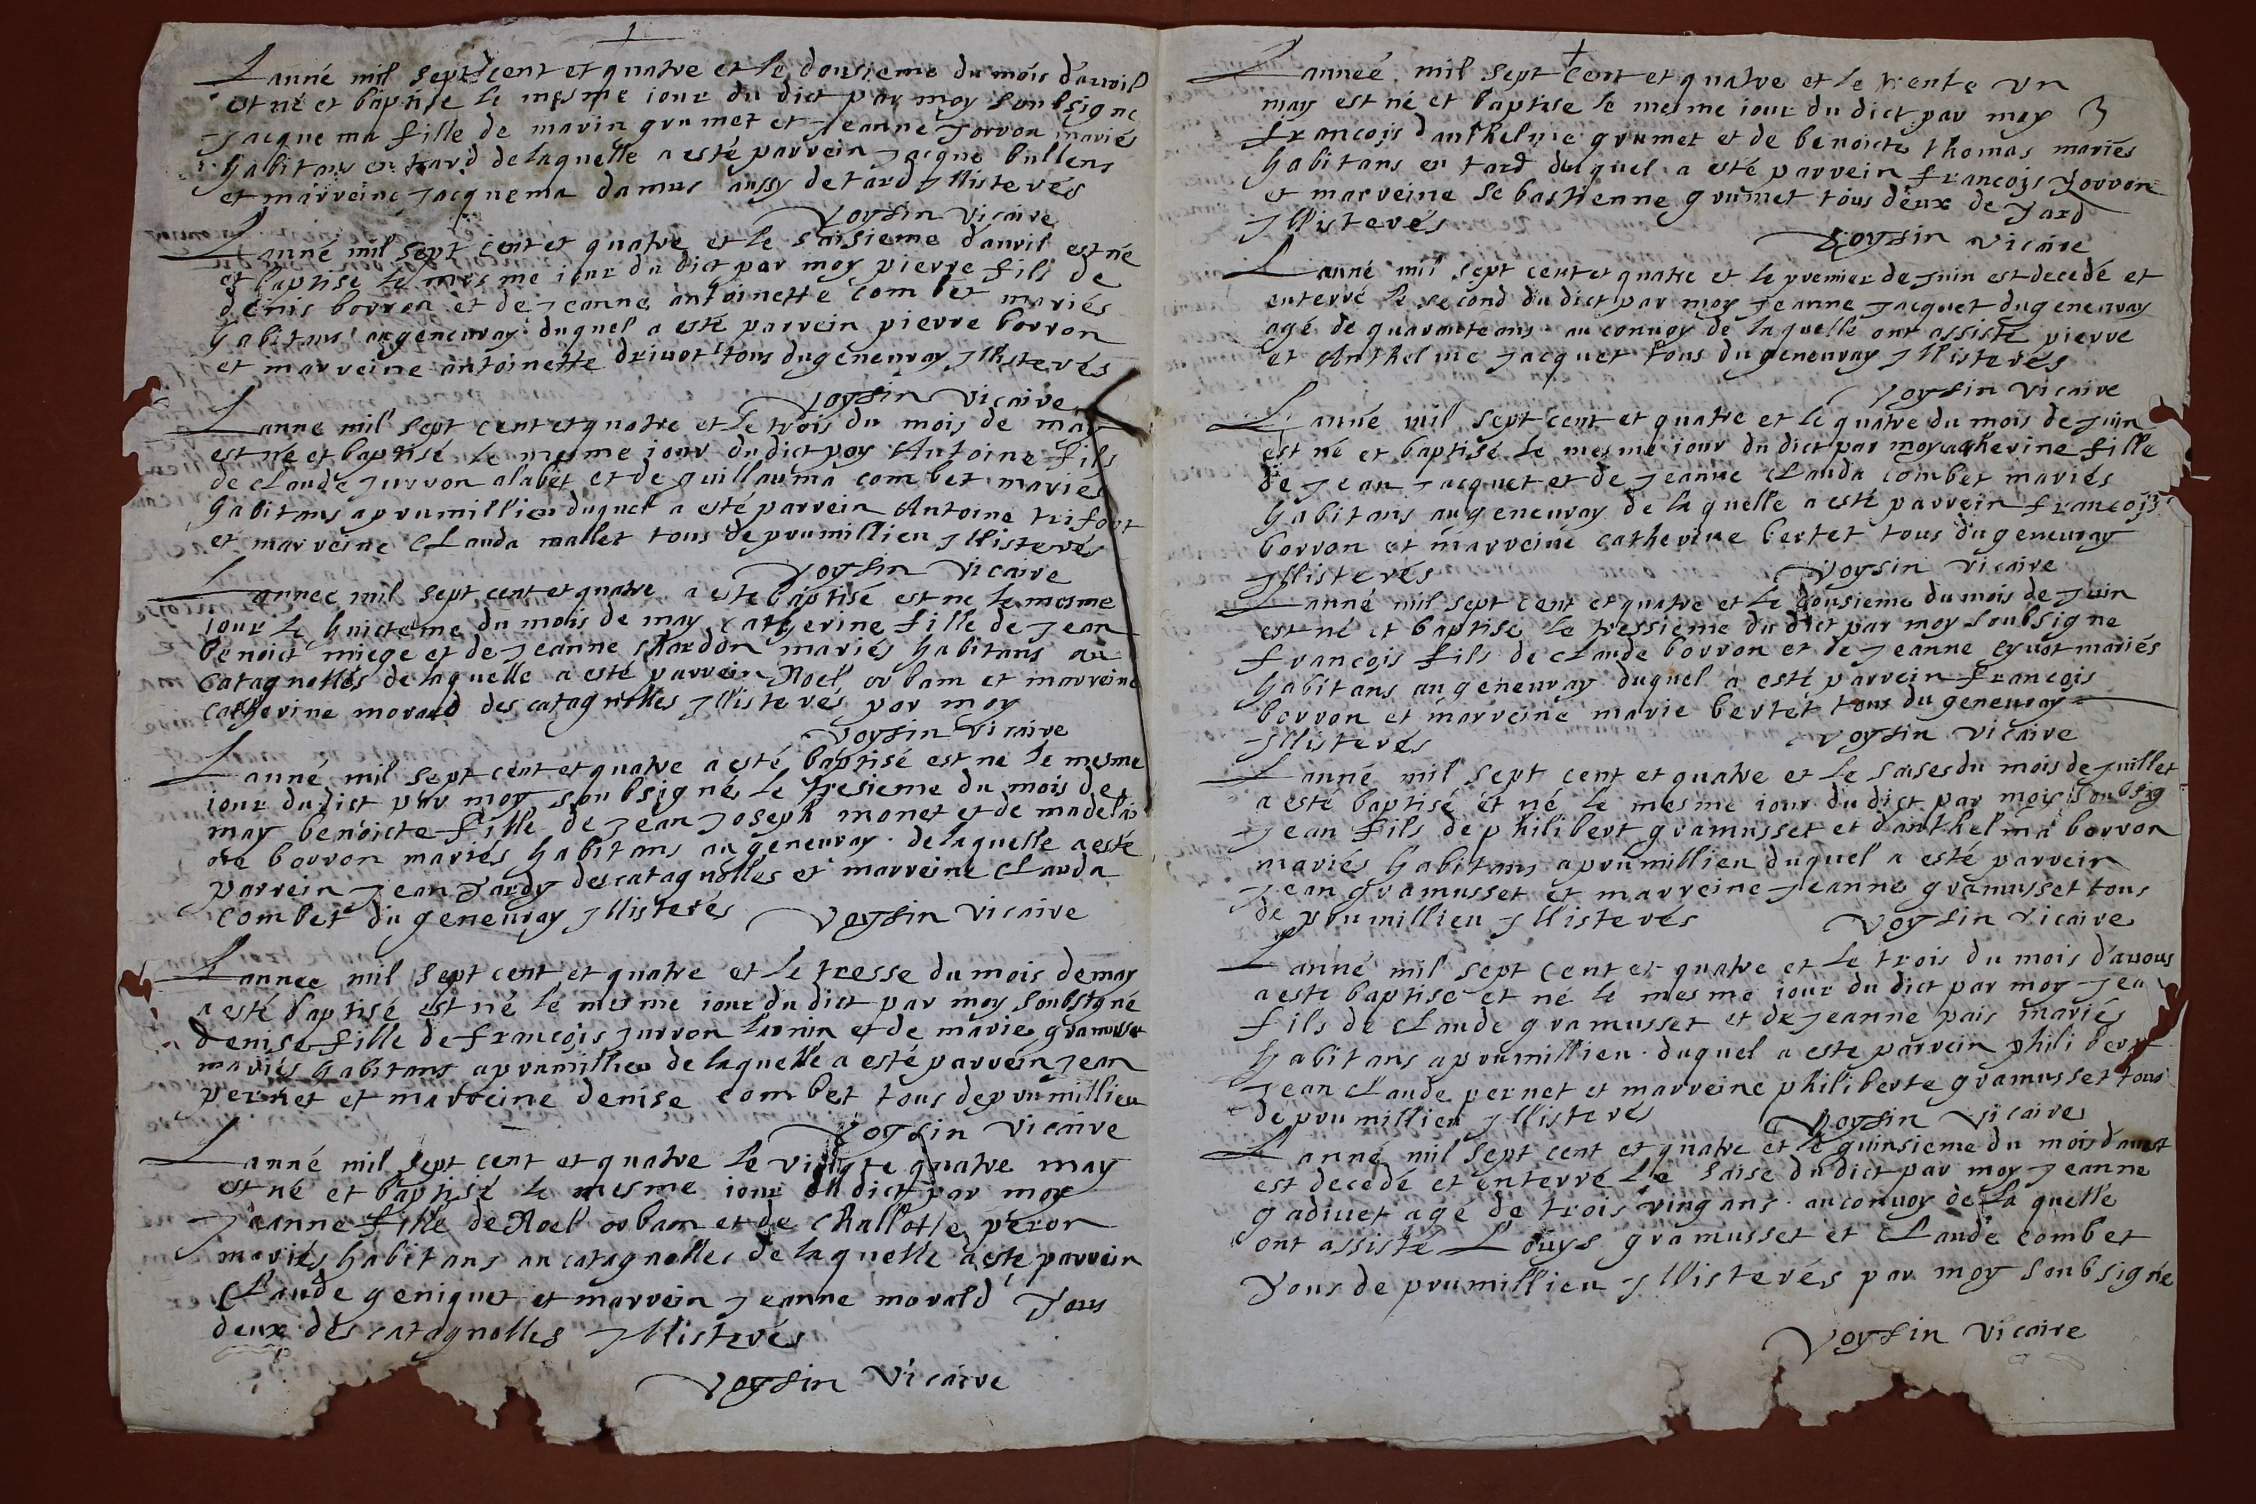 Lanné mil sept cent et quatre et le dousieme du mois d'auvil
est né et baptise le mesme iour du dict par moy soubsigne
Jacquema fille de marin grumet et Jeanne Jorron mariés
habitans en tard de laquelle a esté parrein Jacque bullens
et marreine Jacquema damus aussy de tard Illisterés
Voysin Vicaire
Lanné mil sept cent et quatre et le saisieme d'auril est né
et baptise le mesme iour du dict par moy pierre fils de
denis borron et de Jeanne antoinette combet mariés
habitans au geneuray duquel a esté parrein pierre borron
et marreine antoinette driuot tous du geneuray Illisterés
Voysin Vicaire
Lanne mil sept cent et quatre et le trois du mois de may
est né et baptisé le mesme iour du dict poy Antoine fils
de Claude Jurron alabet et de guillauma combet mariés
habitans a prumillieu duquel a esté parrein Antoine trifort
et marreine Clauda mallet tous de prumillieu Illisterés
Voysin Vicaire
Lannee mil sept cent et quatre a esté baptisé est ne le mesme
iour le huictieme du mois de may Catherine fille de Jean
benoict miege et de Jeanne Chardon mariés habitans au
Catagnolles de laquelle a esté parrein Noel orbam et marreine
Catherine morard des catagnolles Illisterés par moy
Voysin Vicaire
Lanné mil sept cent et quatre a esté baptisé est ne le mesme
iour du dict par moy soubsigné le tresieme du mois de
may benoicte fille de Jean Joseph monet et de madelai
ne borron mariés habitans au geneuray de laquelle a esté
parrein Jean Jardy des catagnolles et marreine Clauda
combet du geneuray Illisterés Voysin Vicaire
Lannee mil sept cent et quatre et le tresse du mois de may
a esté baptisé est né le mesme iour du dict par moy soubsigné
denise fille de françois Jurron lunin et de marie gramusset
mariés habitans a prumillieu de laquelle a esté parrein Jean
pernet et marreine denise combet tous de prumillieu
Voysin Vicaire
Lanné mil sept cent et quatre le vingte quatre may
est né et baptisé le mesme iour du dict par moy
Jeanne fille de Noel orbam et de Challotte peron
mariés habitans au catagnolles de laquelle a esté parrein
Claude geniquet et marrein Jeanne morald Tous
deux des catagnolles Illisterés
Voysin Vicaire
Lanneé mil sept cent et quatre et le trente un
may est né et baptise le mesme iour du dict par moy 3
françois d'anthelme grumet et de benoicte thomas mariés
habitans en tard duquel a esté parrein françois Jorron
et marreine sebastienne grumet tous deux de Tard
Illisterés
Voysin Vicaire
Lanné mil sept cent et quatre et le premier de Juin est decedé et
enterré le second du dict par moy Jeanne Jacquet du geneuray
agé de quarante ans au conuoy de laquelle ont assisté pierre
et Anthelme Jacquet tous du geneuray Illisterés
Voysin Vicaire
Lanné mil sept cent et quatre et le quatre du mois de Juin
est né et baptisé le mesme iour du dict par moy catherine fille
de Jean Jacquet et de Jeanne Clauda combet mariés
habitans au geneuray de laquelle a esté parrein françois
borron et marreine catherine bertet tous du geneuray
Illisterés Voysin Vicaire
Lanné mil sept cent et quatre et le dousieme du mois de Juin
est né et baptise le tressieme du dict par moy soubsigne
françois fils de Claude borron et de Jeanne eynot mariés
habitans au geneuray duquel a esté parrein françois
borron et marreine marie bertet tous du geneuray
Illisterés Voysin Vicaire
Lanné mil sept cent et quatre et le saises du mois de Juillet
a esté baptisé et né le mesme iour du dict par moy soubsig
Jean fils de philibert gramusset et d'anthelma borron
mariés habitans a prumillieu duquel a esté parrein
Jean gramusset et marreine Jeanne gramusset tous
de prumillieu Illisterés Voysin Vicaire
Lanné mil sept cent et quatre et le trois du mois d'auous
a este baptise et né le mesme iour du dict par moy Jean
fils de Claude gramusset et de Jeanne pais mariés
habitans a prumillieu duquel a este parrein philibert
Jean Claude pernet et marreine philiberte gramusset tous
de prumillieu Illisterés Voysin Vicaire
Lanné mil sept cent et quatre et le quinsieme du mois d'auost
est decedé et enterré le saise du dict par moy Jeanne
gadiuet agé de trois ving ans au conuoy de la quelle
ont assisté Louys gramusset et Claude combet
Tous de prumillieu Illisterés par moy soubsigné
Voysin Vicaire